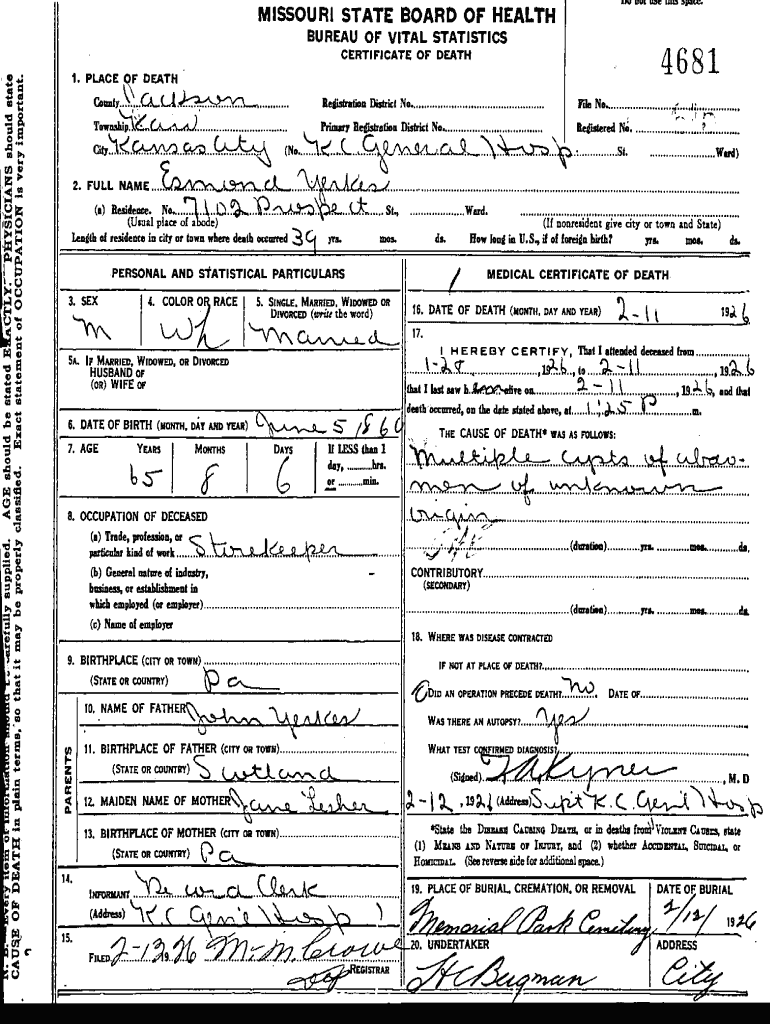 MISSOURI STATE BOARD OF HEALTH
BUREAU OF VITAL STATISTICS
CERTIFICATE OF DEATH
Do not use this space.
4681
1. PLACE OF DEATH
County Jackson Registration District No. File No.
Township Kaw Primary Registration District No. Registered No.
City Kansas City (No. K.C. General Hosp. St. Ward)
2. FULL NAME Esmond Yerkes
(a) Residence. No. 7102 Prospect St., Ward.
(Usual place of abode) (If nonresident give city or town and State)
Length of residence in city or town where death occurred 39 yrs. mos. ds. How long in U.S., if of foreign birth? yrs. mos. ds.
PERSONAL AND STATISTICAL PARTICULARS
3. SEX 4. COLOR OR RACE 5. SINGLE, MARRIED, WIDOWED OR
DIVORCED (write the word)
M Wh Married
5A. IF MARRIED, WIDOWED, OR DIVORCED
HUSBAND OF
(OR) WIFE OF
6. DATE OF BIRTH (MONTH, DAY AND YEAR) June 5 1860
7. AGE YEARS MONTHS DAYS If LESS than 1
day, hrs.
or min.
65 8 6
8. OCCUPATION OF DECEASED
(a) Trade, profession, or
particular kind of work Storekeeper
(b) General nature of industry,
business, or establishment in
which employed (or employer)
(c) Name of employer
9. BIRTHPLACE (CITY OR TOWN)
(STATE OR COUNTRY) Pa
PARENTS
10. NAME OF FATHER John Yerkes
11. BIRTHPLACE OF FATHER (CITY OR TOWN)
(STATE OR COUNTRY) Scotland
12. MAIDEN NAME OF MOTHER Jane Lesher
13. BIRTHPLACE OF MOTHER (CITY OR TOWN)
(STATE OR COUNTRY) Pa
14.
INFORMANT Record Clerk
(Address) K.C. Gen'l Hosp
15.
FILED 2-12 1926 M. M. Crowe
Dep REGISTRAR
MEDICAL CERTIFICATE OF DEATH
16. DATE OF DEATH (MONTH, DAY AND YEAR) 2-11 1926
17.
I HEREBY CERTIFY, That I attended deceased from
1-28, 1926, to 2-11, 1926
that I last saw h alive on 2-11, 1926, and that
death occurred, on the date stated above, at 1:25 P m.
THE CAUSE OF DEATH* WAS AS FOLLOWS:
Multiple cysts of abdo-
men of unknown
origin
(duration) yrs. mos. ds.
CONTRIBUTORY
(SECONDARY)
(duration) yrs. mos. ds.
18. WHERE WAS DISEASE CONTRACTED
IF NOT AT PLACE OF DEATH?
DID AN OPERATION PRECEDE DEATH? No. DATE OF
WAS THERE AN AUTOPSY? Yes
WHAT TEST CONFIRMED DIAGNOSIS?
(Signed) , M. D
2-12, 1926 (Address) Supt K.C. Gen'l Hosp
*State the DISEASE CAUSING DEATH, or in deaths from VIOLENT CAUSES, state
(1) MEANS AND NATURE OF INJURY, and (2) whether ACCIDENTAL, SUICIDAL, or
HOMICIDAL. (See reverse side for additional space.)
19. PLACE OF BURIAL, CREMATION, OR REMOVAL DATE OF BURIAL
Memorial Park Cemetery 2/12/ 1926
20. UNDERTAKER ADDRESS
City
N. B.—Every item of information should be carefully supplied. AGE should be stated EXACTLY. PHYSICIANS should state
CAUSE OF DEATH in plain terms, so that it may be properly classified. Exact statement of OCCUPATION is very important.